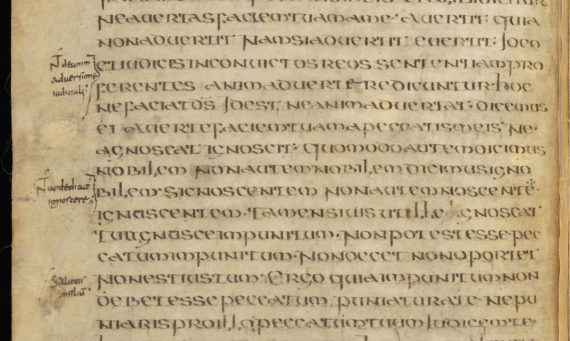 NEAVERTASFACIEMTUAMAME · AVERTI · QUIA
NONADVERTIT NAMSIADVERTIT EVERTIT · IDEO
N deanim
adversione
iudiciali
ETIUDICESINCONVICTOSREOS SENTENTIAMPRO
FERENTES ANIMADVERTERE DICUNTUR · HOC
NEFACIATOS IDEST NEANIMADVERTAT · DICEMUS
EI AVERTEFACIEMTUAMAPECCATISMEIS NE
AGNOSCAT IGNOSCIT · QUOMODOAUTEMDICIMUS
NOBILEM NONAUTEMNOBILEMDICIMUSIGNO
N
ignoscere
BILEM · SICNOSCENTEM NONAUTEMNOSCENTĒ
IGNOSCENTEM · TAMENSIVIS UTILLE IGNOSCAT
TUIGNOSCE IMPUNITUM · NONPOTESTESSEPEC
CATUMIMPUNITUM · NONDECET NONOPORTET
NONESTIUSTUM · ERGO QUIAIMPUNITUMNON
DEBETESSEPECCATUM PUNIATURATE NEPU
NIARISPROILLO PECCATUMTUUMIUDICEMTE